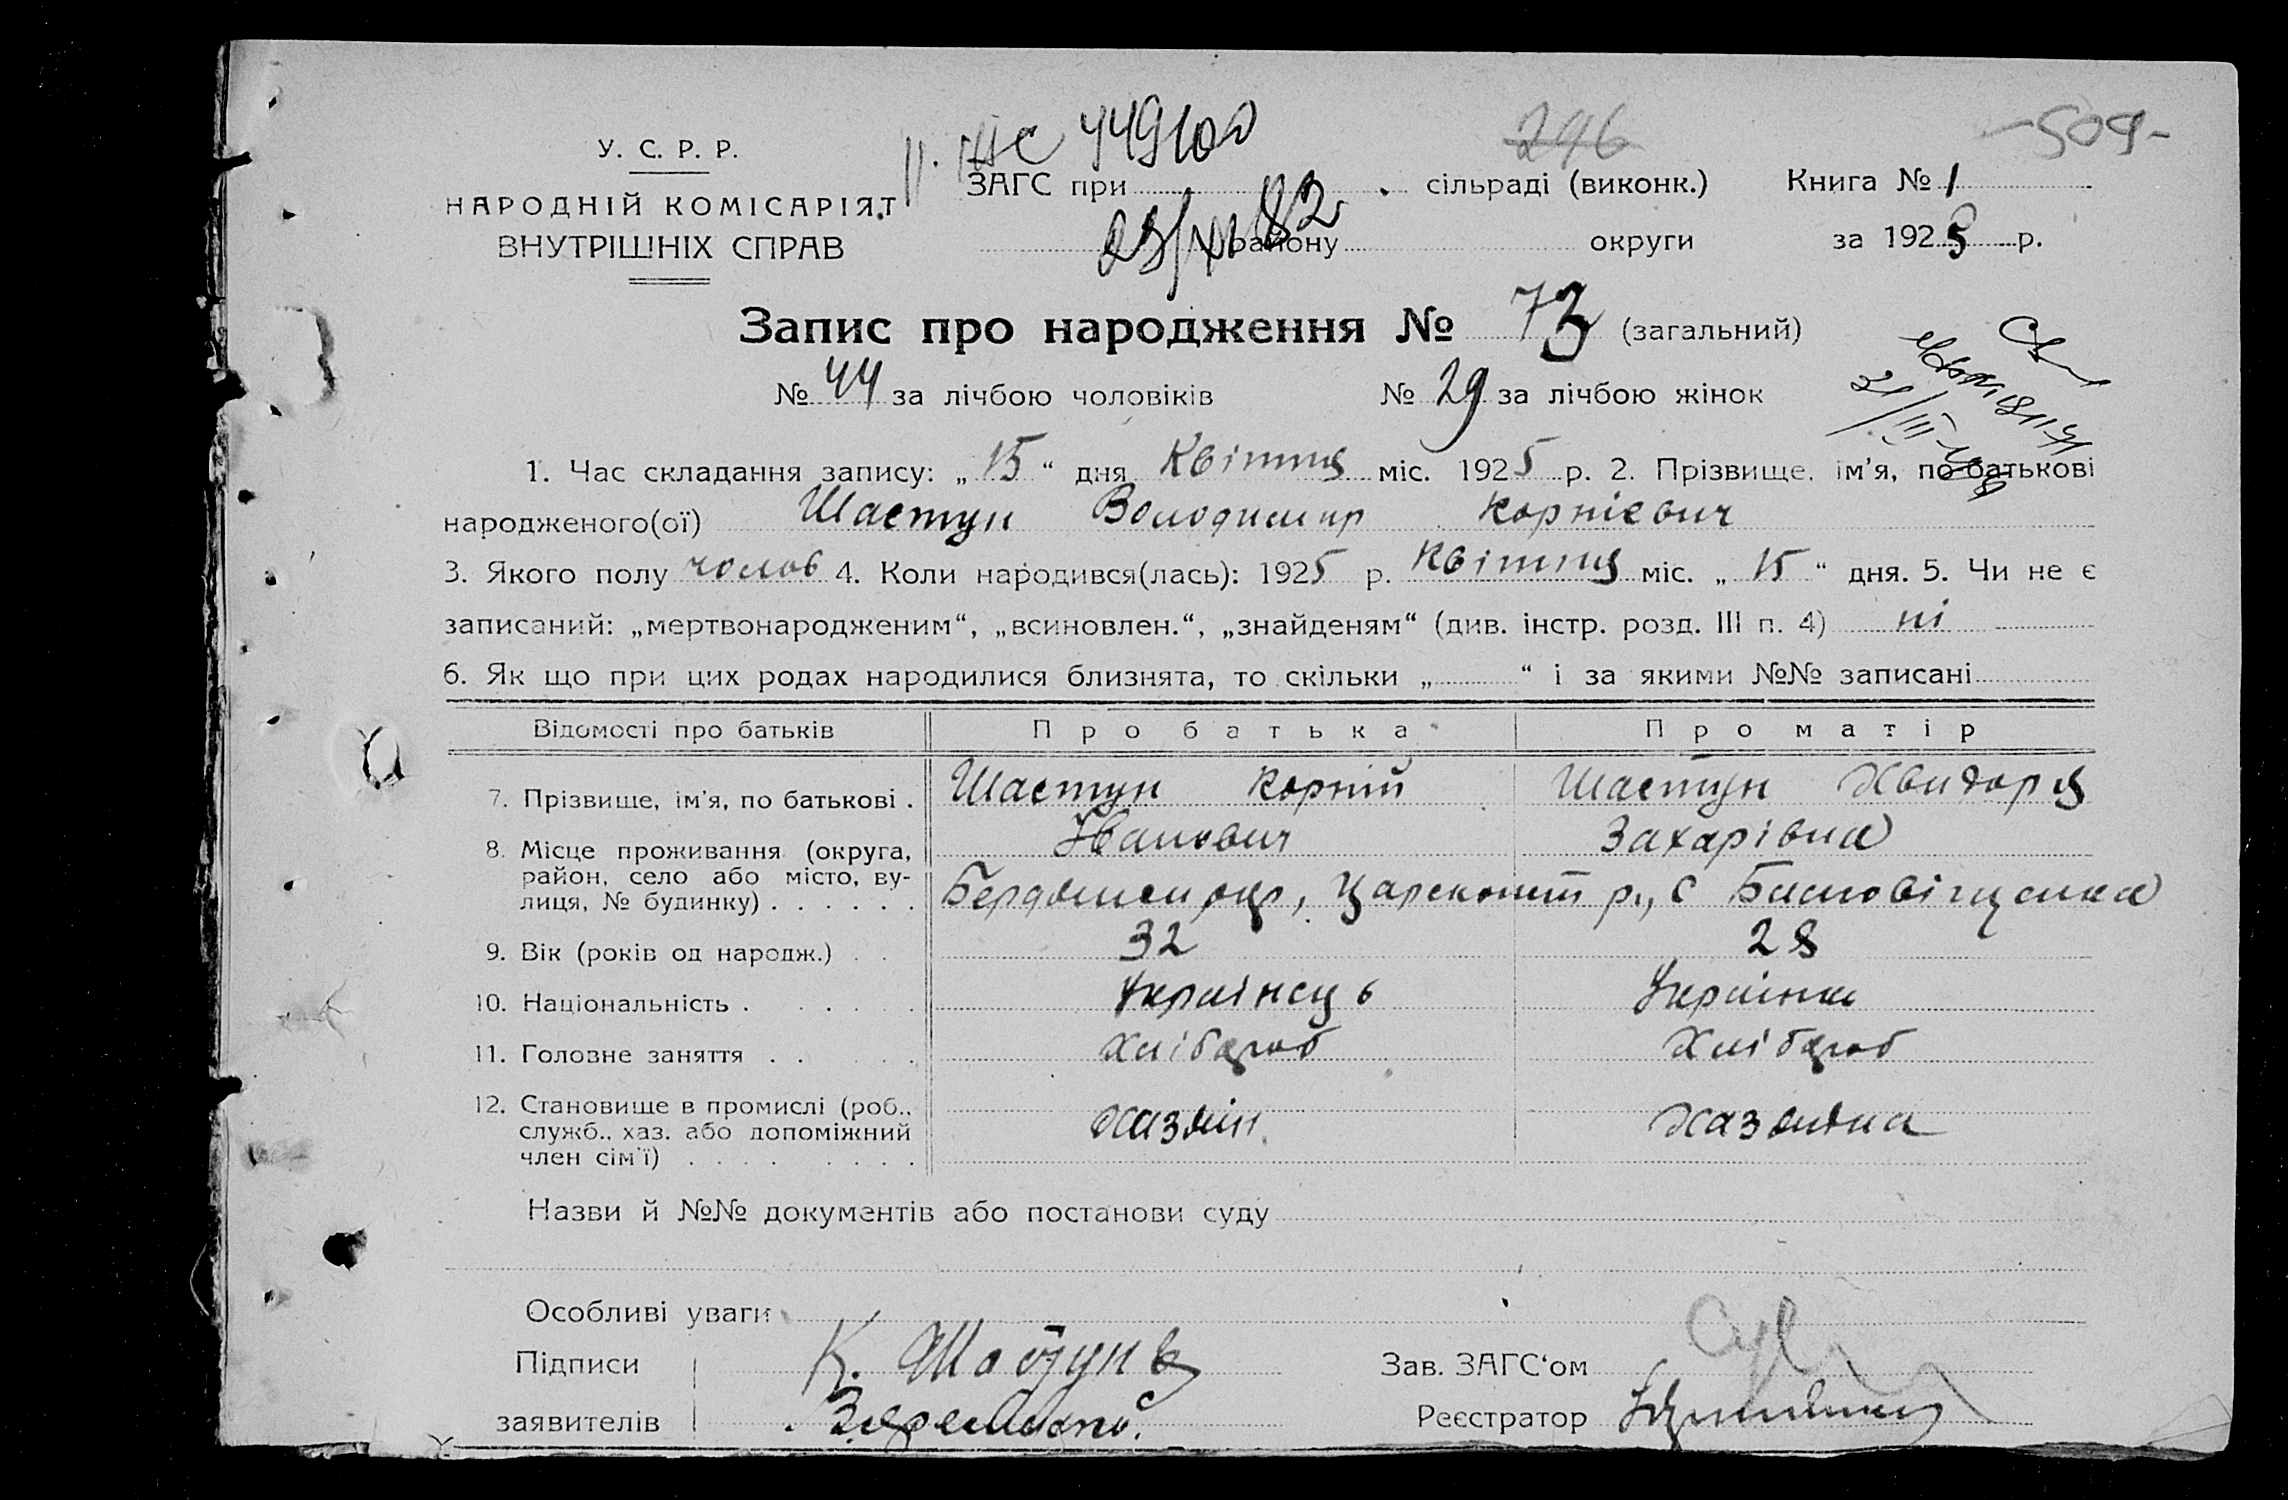 -509-
296
449100
У. С. Р. Р.
НАРОДНІЙ КОМІСАРІЯТ
ВНУТРІШНІХ СПРАВ
ЗАГС при сільраді (виконк.) Книга № 1
району округи за 1925 р.
Запис про народження № 73 (загальний)
№ 44 за лічбою чоловіків № 29 за лічбою жінок
1. Час складання запису: „ 15 “ дня Квітня міс. 1925 р. 2. Прізвище, ім’я, по батькові
народженого(ої) Шастун Володимир Корнієвич
3. Якого полу чолов 4. Коли народився(лась): 1925 р. Квітня міс. „ 15 “ дня. 5. Чи не є
записаний: „мертвонародженим“, „всиновлен.“, „знайденям“ (див. інстр. розд. III п. 4) ні
6. Як що при цих родах народилися близнята, то скільки „ “ і за якими №№ записані
Відомості про батьків Про батька Про матір
7. Прізвище, ім’я, по батькові . Шастун Корній Шастун Хвидоря
Іванович Захарівна
8. Місце проживання (округа, район, село або місто, вулиця, № будинку) . . . . . . Бердянськ окр, Цареконст р., с Благовіщенка
9. Вік (років од народж.) . . 32 28
10. Національність . . . . . . Українець Українка
11. Головне заняття . . . . . Хлібороб Хлібороб
12. Становище в промислі (роб., служб., хаз. або допоміжний член сім’ї) . . . . . . . . Хазяїн Хазяйка
Назви й №№ документів або постанови суду
Особливі уваги
Підписи К. Шастунъ Зав. ЗАГС‘ом
заявителів Реєстратор